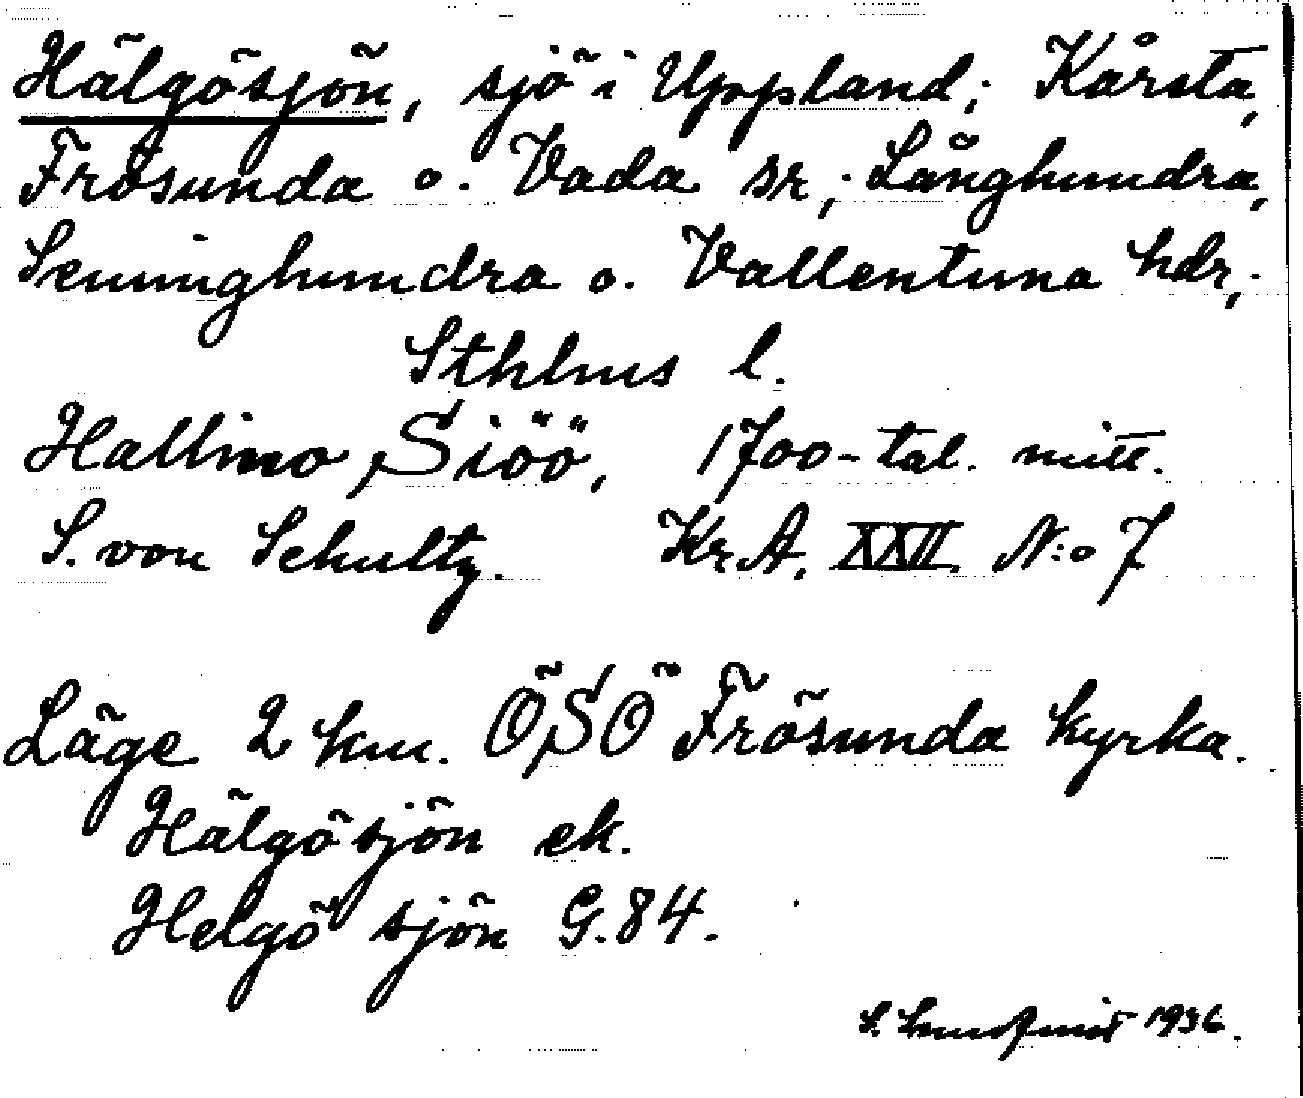 Hälgösjön, sjö i Uppland; Kårsta,
Frösunda o. Vada sr,; Långhundra,
Seminghundra o. Vallentuna hdr,;
Sthlms l.
Hallmo Siöö, 1700-tal. mitt.
S. von Schultz. Kr.A. XXII. N:o 7
Läge 2 km. ÖSÖ Frösunda kyrka.
Hälgösjön ek.
Helgö sjön G.84.
S. 1936.